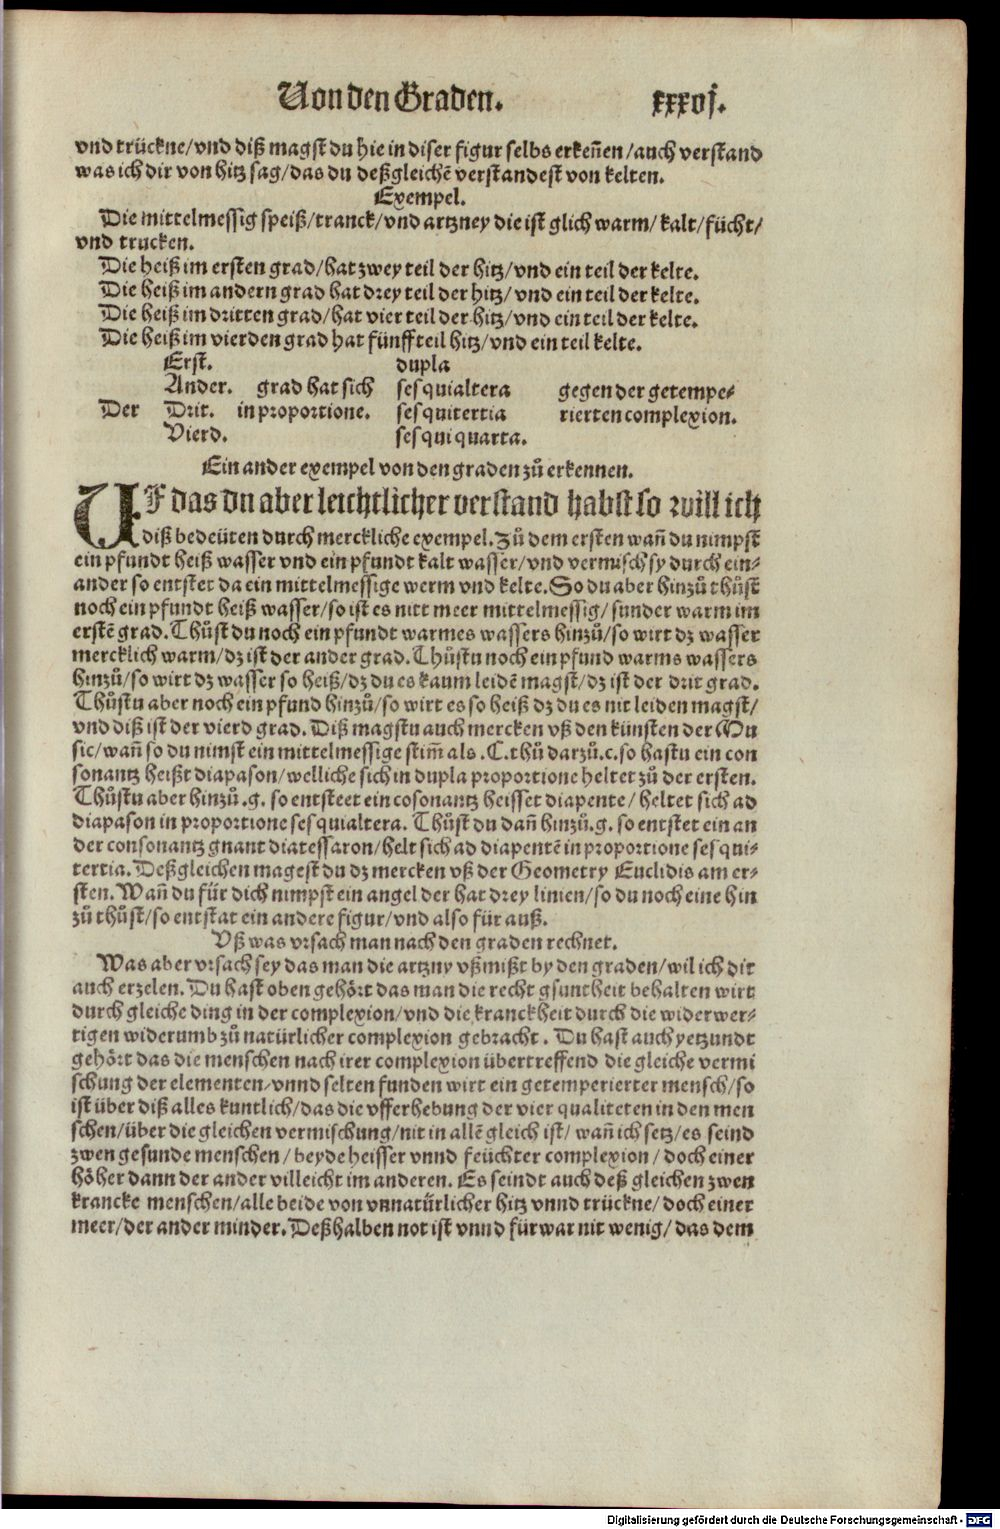 Von den Graden. xxxvj.
vnd trückne/vnd diß magst du hie in diser figur selbs erkeñen/auch verstand
was ich dir von hitz sag/das du deßgleichẽ verstandest von kelten.
Exempel.
Die mittelmessig speiß/tranck/vnd artzney die ist glich warm/kalt/fücht/
vnd trucken.
Die heiß im ersten grad/hat zwey teil der hitz/vnd ein teil der kelte.
Die heiß im andern grad hat drey teil der hitz/vnd ein teil der kelte.
Die heiß im dritten grad/hat vier teil der hitz/vnd ein teil der kelte.
Die heiß im vierden grad hat fünff teil hitz/vnd ein teil kelte.
Erst. dupla
Ander. grad hat sich sesquialtera gegen der getempe-
Der Drit. in proportione. sesquitertia rierten complexion.
Vierd. sesquiquarta.
Ein ander exempel von den graden zů erkennen.
UF das du aber leichtlicher verstand habst so will ich
diß bedeüten durch merckliche exempel. Zů dem ersten wañ du nimpst
ein pfundt heiß wasser vnd ein pfundt kalt wasser/vnd vermisch sy durch ein-
ander so entstet da ein mittelmessige werm vnd kelte. So du aber hinzů thůst
noch ein pfundt heiß wasser/so ist es nitt meer mittelmessig/sunder warm im
erstẽ grad. Thůst du noch ein pfundt warmes wassers hinzů/so wirt dz wasser
mercklich warm/dz ist der ander grad. Thůstu noch ein pfund warms wassers
hinzů/so wirt dz wasser so heiß/dz du es kaum leidẽ magst/dz ist der drit grad.
Thůstu aber noch ein pfund hinzů/so wirt es so heiß dz du es nit leiden magst/
vnd diß ist der vierd grad. Diß magstu auch mercken vß den künsten der Mu
sic/wañ so du nimst ein mittelmessige stim̃ als .C. thů darzů .c. so hastu ein con
sonantz heißt diapason/welliche sich in dupla proportione heltet zů der ersten.
Thůstu aber hinzů .g. so entsteet ein cosonantz heisset diapente/heltet sich ad
diapason in proportione sesquialtera. Thůst du dañ hinzů .g. so entstet ein an
der consonantz gnant diatessaron/helt sich ad diapentẽ in proportione sesqui-
tertia. Deßgleichen magest du dz mercken vß der Geometry Euclidis am er-
sten. Wañ du für dich nimpst ein angel der hat drey linien/so du noch eine hin
zů thůst/so entstat ein andere figur/vnd also für auß.
Vß was vrsach man nach den graden rechnet.
Was aber vrsach sey das man die artzny vßmißt by den graden/wil ich dir
auch erzelen. Du hast oben gehört das man die recht gsuntheit behalten wirt
durch gleiche ding in der complexion/vnd die kranckheit durch die widerwer-
tigen widerumb zů natürlicher complexion gebracht. Du hast auch yetzundt
gehört das die menschen nach irer complexion übertreffend die gleiche vermi
schung der elementen/vnnd selten funden wirt ein getemperierter mensch/so
ist über diß alles kuntlich/das die vfferhebung der vier qualiteten in den men
schen/über die gleichen vermischung/nit in allẽ gleich ist/wañ ich setz/es seind
zwen gesunde menschen/beyde heisser vnnd feüchter complexion/doch einer
höher dann der ander villeicht im anderen. Es seindt auch deß gleichen zwen
krancke menschen/alle beide von vnnatürlicher hitz vnnd trückne/doch einer
meer/der ander minder. Deßhalben not ist vnnd fürwar nit wenig/das dem
Digitalisierung gefördert durch die Deutsche Forschungsgemeinschaft - DFG